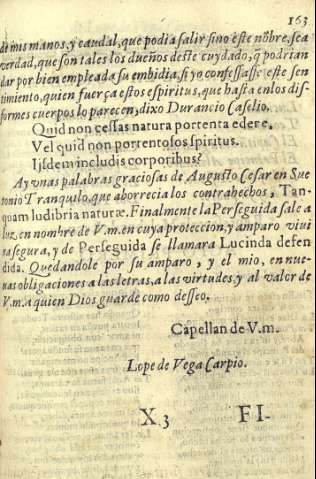 163
de mis manos, y caudal, que podia salir sino este nõbre, sea
verdad, que son tales los dueños deste cuydado, q̃ podrian
dar por bien empleada su embidia, si yo confessasse este sen
timiento, quien fuerça estos espiritus, que hasta en los dis-
formes cuerpos lo parecen, dixo Durancio Caselio.
Quid non cessas natura portenta edere,
Vel quid non portentosos spiritus.
Ijsdem includis corporibus?
Ay vnas palabras graciosas de Augusto Cesar en Sue
tonio Tranquulo, que aborrecia los contrahechos, Tan-
quam ludibria naturæ. Finalmente la Perseguida sale a
luz, en nombre de V.m. en cuya proteccion, y amparo viui
ra segura, y de Perseguida se llamara Lucinda defen
dida. Quedandole por su amparo, y el mio, en nue-
uas obligaciones a las letras, a las virtudes, y al valor de
V.m. a quien Dios guarde como desseo.
Capellan de V.m.
Lope de Vega Carpio.
X 3 FI-